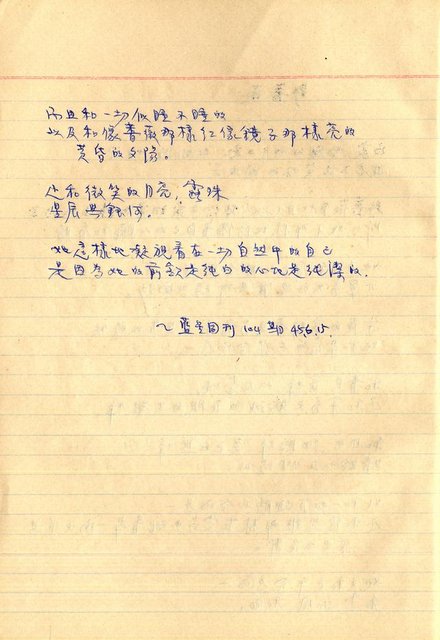 而且和一切似睡不睡的
以及和像薔薇那樣紅像鏡子那樣亮的
黃昏的夕陽。
还和微笑的月亮，露珠
星辰與銀河。
她這樣地凝視著在一切自然中的自己
是因為她的前額是純白的心地是純潔的。
～藍星周刊 104 期 45.6.15.